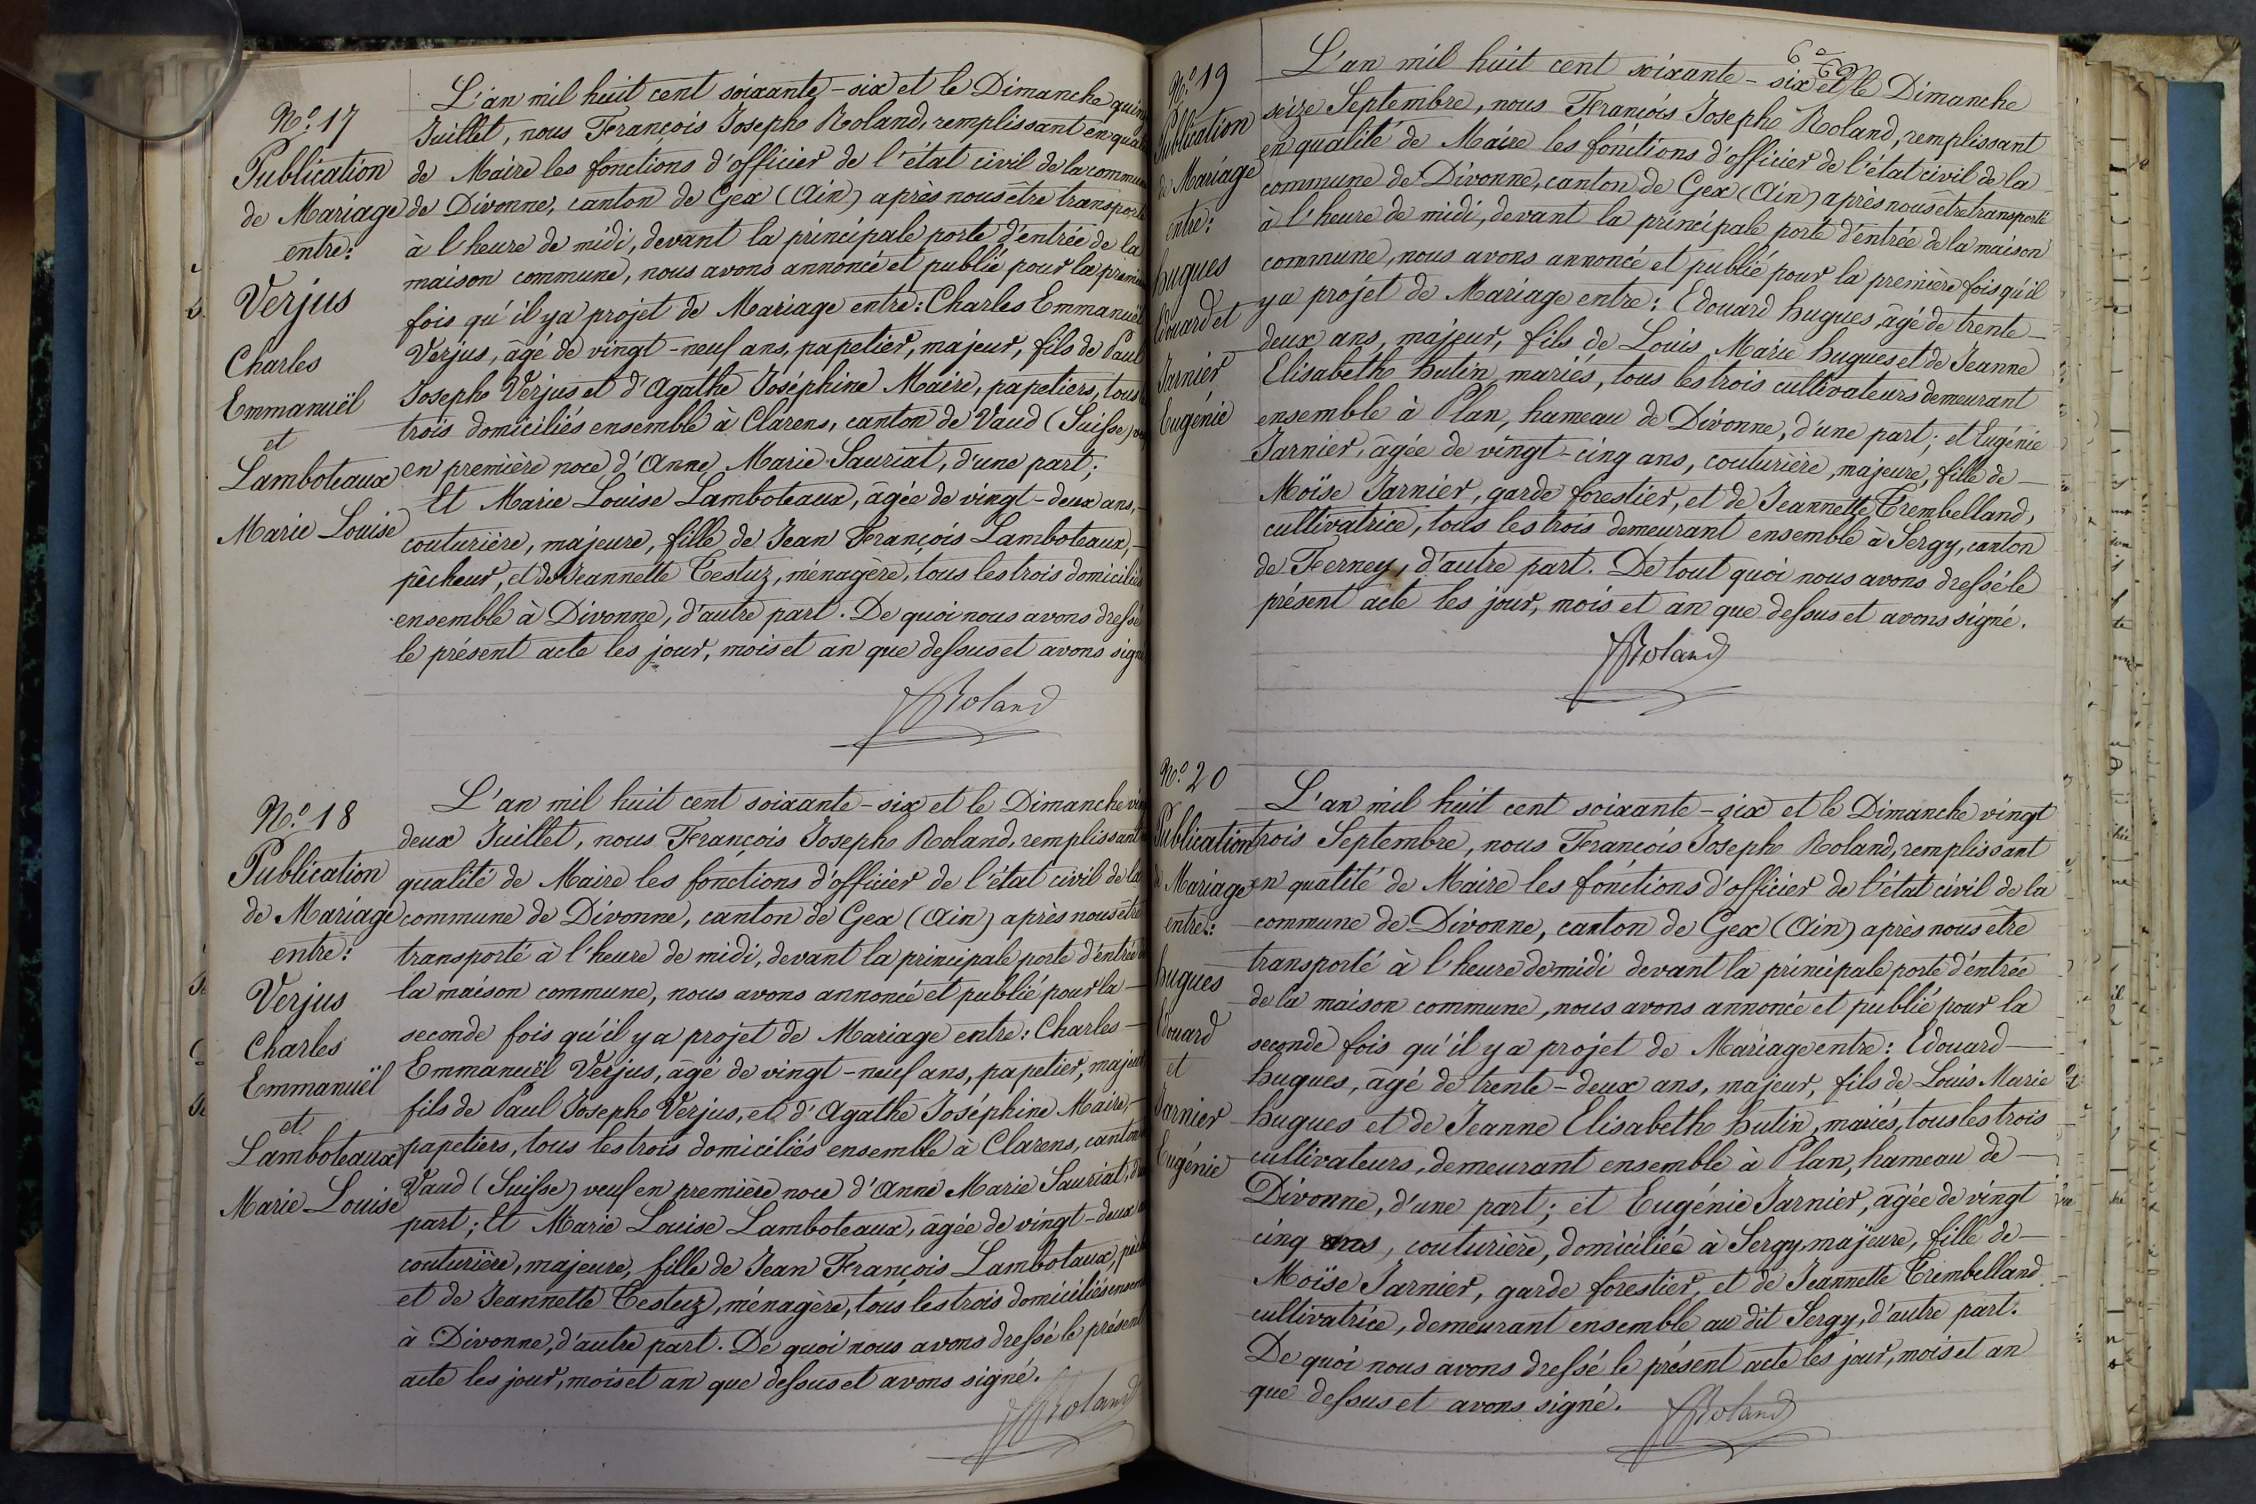 N.º 17
Publication
de Mariage
entre:
Verjus
Charles
Emmanuël
et
Lamboteaux
Marie Louise
L'an mil huit cent soixante-six et le Dimanche
Juillet, nous François Joseph Roland, remplissant en
de Maire les fonctions d'officier de l'état civil de la
de Divonne, canton de Gex (Ain) après nous être
à l'heure de midi, devant la principale porte d'entrée de la
maison commune, nous avons annoncé et publié pour la
fois qu'il y a projet de Mariage entre: Charles Emmanuël
Verjus, âgé de vingt-neuf ans, papetier, majeur, fils de Paul
Joseph Verjus et d'Agathe Joséphine Maire, papetiers, tous
trois domiciliés ensemble à Clarens, canton de Vaud (Suisse)
en première noce d'Anne Marie Sauriat, d'une part;
Et Marie Louise Lamboteaux, âgée de vingt-deux ans,
couturière, majeure, fille de Jean François Lamboteaux,
pêcheur, et de Jeannette Testuz, ménagère, tous les trois
ensemble à Divonne, d'autre part. De quoi nous avons
le présent acte les jour, mois et an que dessus et avons
Roland
N.º 18
Publication
de Mariage
entre:
Verjus
Charles
Emmanuël
et
Lamboteaux
Marie Louise
L'an mil huit cent soixante-six et le Dimanche
deux Juillet, nous François Joseph Roland, remplissant
qualité de Maire les fonctions d'officier de l'état civil de la
commune de Divonne, canton de Gex (Ain) après nous être
transporté à l'heure de midi, devant la principale porte d'entrée
la maison commune, nous avons annoncé et publié pour la
seconde fois qu'il y a projet de Mariage entre: Charles
Emmanuël Verjus, âgé de vingt-neuf ans, papetier,
fils de Paul Joseph Verjus, et d'Agathe Joséphine Maire,
papetiers, tous les trois domiciliés ensemble à Clarens, canton
Vaud (Suisse) veuf en première noce d'Anne Marie Sauriat,
part; Et Marie Louise Lamboteaux, âgée de vingt-deux
couturière, majeure, fille de Jean François Lambotaux,
et de Jeannette Testuz, ménagère, tous les trois domiciliés
à Divonne, d'autre part. De quoi nous avons dressé le présent
acte les jour, mois et an que dessus et avons signé.
Roland
N.º 19
Publication
de Mariage
entre:
hugues
Edouard et
Jarnier
Eugénie
L'an mil huit cent soixante-six et le Dimanche
seize Septembre, nous François Joseph Roland, remplissant
en qualité de Maire les fonctions d'officier de l'état civil de la
commune de Divonne, canton de Gex (Ain) après nous être transporté
à l'heure de midi, devant la principale porte d'entrée de la maison
commune, nous avons annoncé et publié pour la première fois qu'il
y a projet de Mariage entre: Edouard hugues, âgé de trente-
deux ans, majeur, fils de Louis Marie hugues et de Jeanne
Elisabeth hutin, mariés, tous les trois cultivateurs demeurant
ensemble à Plan, hameau de Divonne, d'une part; et Eugénie
Jarnier, âgée de vingt-cinq ans, couturière, majeure, fille de
Moïse Jarnier, garde forestier, et de Jeannette Trembelland,
cultivatrice, tous les trois demeurant ensemble à Sergy, canton
de Ferney, d'autre part. De tout quoi nous avons dressé le
présent acte les jour, mois et an que dessus et avons signé.
Roland
N.º 20
Publication
de Mariage
entre:
hugues
Edouard
et
Jarnier
Eugénie
L'an mil huit cent soixante-six et le Dimanche vingt
trois Septembre, nous François Joseph Roland, remplissant
en qualité de Maire les fonctions d'officier de l'état civil de la
commune de Divonne, canton de Gex (Ain) après nous être
transporté à l'heure de midi devant la principale porte d'entrée
de la maison commune, nous avons annoncé et publié pour la
seconde fois qu'il y a projet de Mariage entre: Edouard
hugues, âgé de trente-deux ans, majeur, fils de Louis Marie
hugues et de Jeanne Elisabeth hutin, mariés, tous les trois
cultivateurs, demeurant ensemble à Plan, hameau de
Divonne, d'une part; et Eugénie Jarnier, âgée de vingt
cinq ans, couturière, domiciliée à Sergy, majeure, fille de
Moïse Jarnier, garde forestier, et de Jeannette Trembelland
cultivatrice, demeurant ensemble au dit Sergy, d'autre part.
De quoi nous avons dressé le présent acte les jour, mois et an
que dessus et avons signé.
Roland